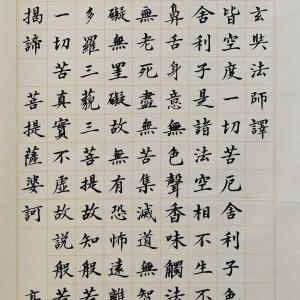 玄奘法師譯
皆空度一切苦厄舍利子色
舍利子是諸法空相不生不
鼻舌身意無色聲香味觸法
無老死盡無苦集滅道無智
礙無罣礙故無有恐怖遠離
多羅三藐三菩提故知般若
一切苦真實不虛故說般若
揭諦 菩提薩婆訶